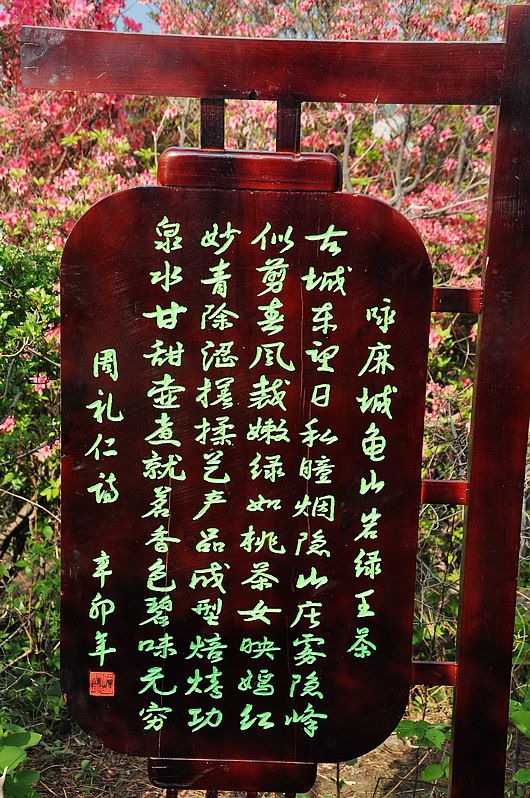 咏麻城龟山岩绿王茶
古城东望日初瞳烟隐山庄雾隐峰
似剪春风裁嫩绿如桃茶女映嫣红
妙青除涩搓揉艺产品成型焙烤功
泉水甘甜壶煮就茗香色碧味无穷
周礼仁诗 辛卯年